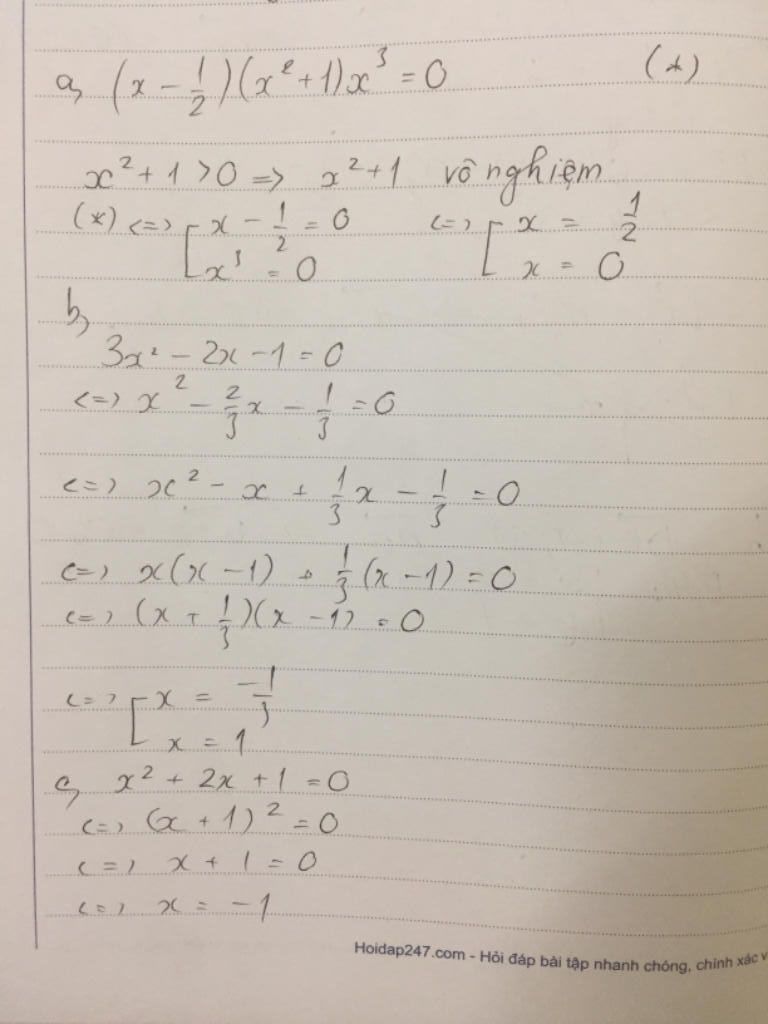 a, (x - 1/2)(x² + 1)x³ = 0 (*)
x² + 1 > 0 => x² + 1 vô nghiệm
(*) <=> [ x - 1/2 = 0 <=> [ x = 1/2
x³ = 0 x = 0
b,
3x² - 2x - 1 = 0
<=> x² - 2/3 x - 1/3 = 0
<=> x² - x + 1/3 x - 1/3 = 0
<=> x(x - 1) + 1/3 (x - 1) = 0
<=> (x + 1/3)(x - 1) = 0
<=> [ x = -1/3
x = 1
c, x² + 2x + 1 = 0
<=> (x + 1)² = 0
<=> x + 1 = 0
<=> x = -1
Hoidap247.com - Hỏi đáp bài tập nhanh chóng, chính xác v